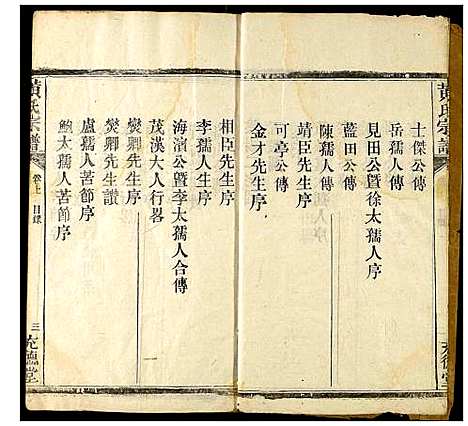 黃氏宗譜
士傑公傳
岳孺人傳
見田公暨徐太孺人序
藍田公傳
陳孺人傳
靖臣先生序
可亭公傳
金才先生序
相臣先生序
李孺人序
海濱公暨李太孺人合傳
茂漢大人行畧
爕卿先生序
爕卿先生讃
盧孺人苦節序
鮑太孺人苦節序
黃氏宗譜
卷上 目錄
三
充德堂